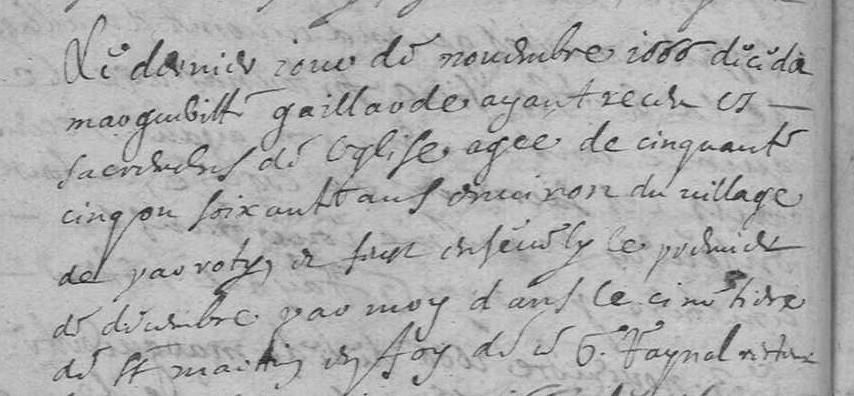 Le dernier iour de nouembre 1666 deceda
margueritte gaillarde ayant receu es
sacremens de leglise agee de cinquante
cinq ou soixante ans enuiron du village
de parroty et fust enseuely le premier
de decembre par moy dans le cimetiere
de st martin en foy de ce G. Raynal